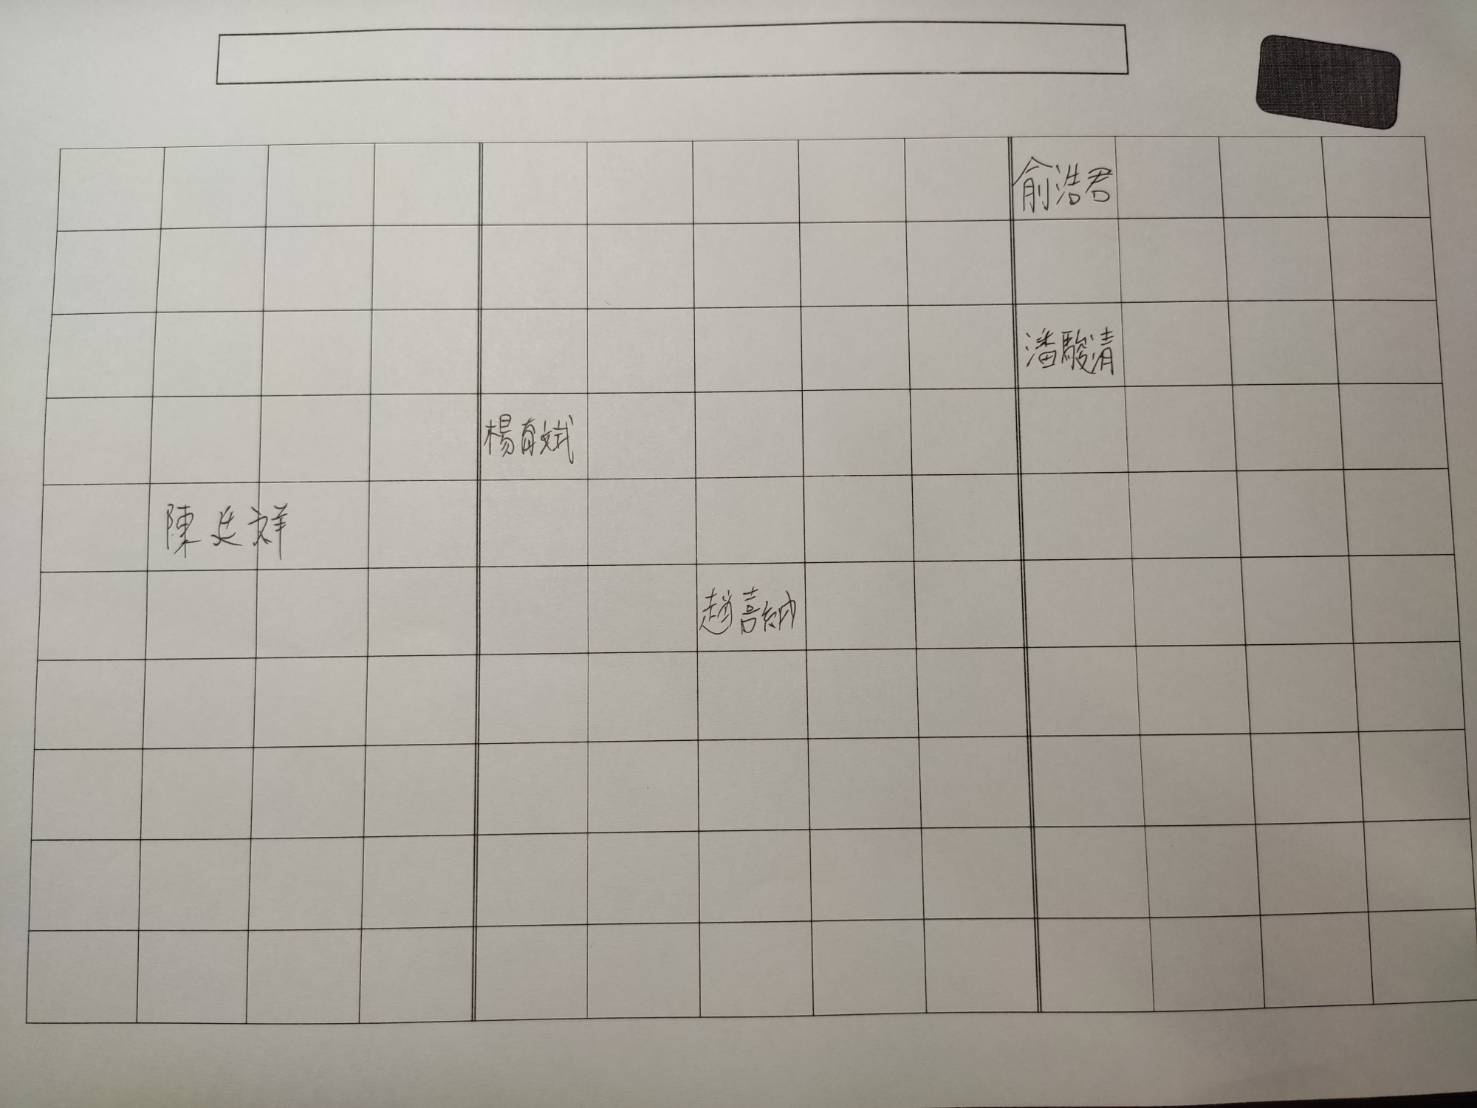 俞浩君
潘駿清
楊育斌
陳廷祥
趙喜納